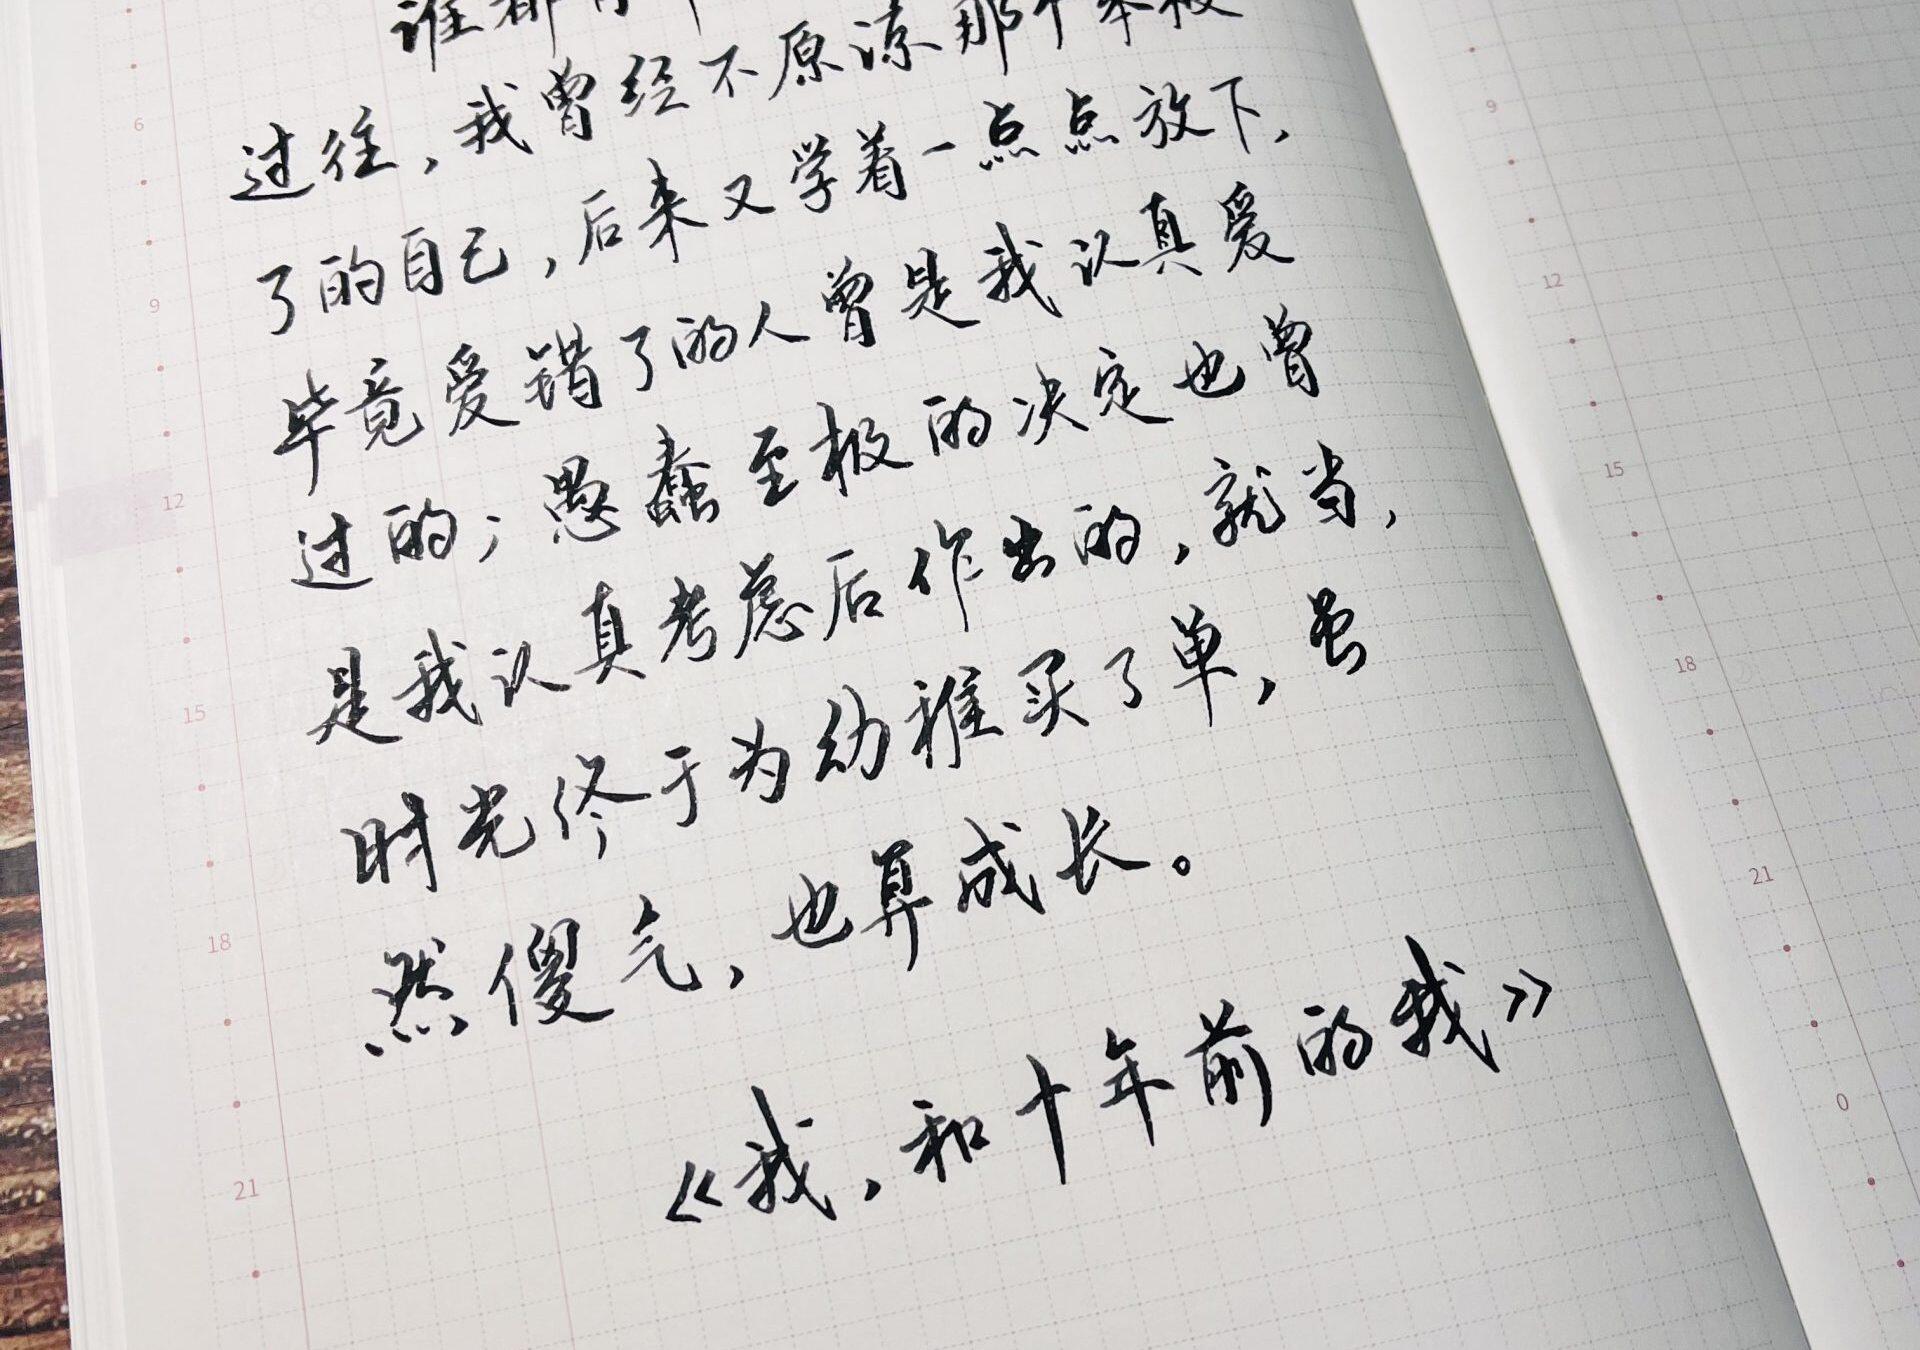 谁都有
过往，我曾经不原谅那个笨极
了的自己，后来又学着一点点放下，
毕竟爱错了的人曾是我认真爱
过的；愚蠢至极的决定也曾
是我认真考虑后作出的，就当，
时光终于为幼稚买了单，虽
然傻气，也算成长。
《我，和十年前的我》
6
9
12
15
18
21
9
12
15
18
21
0